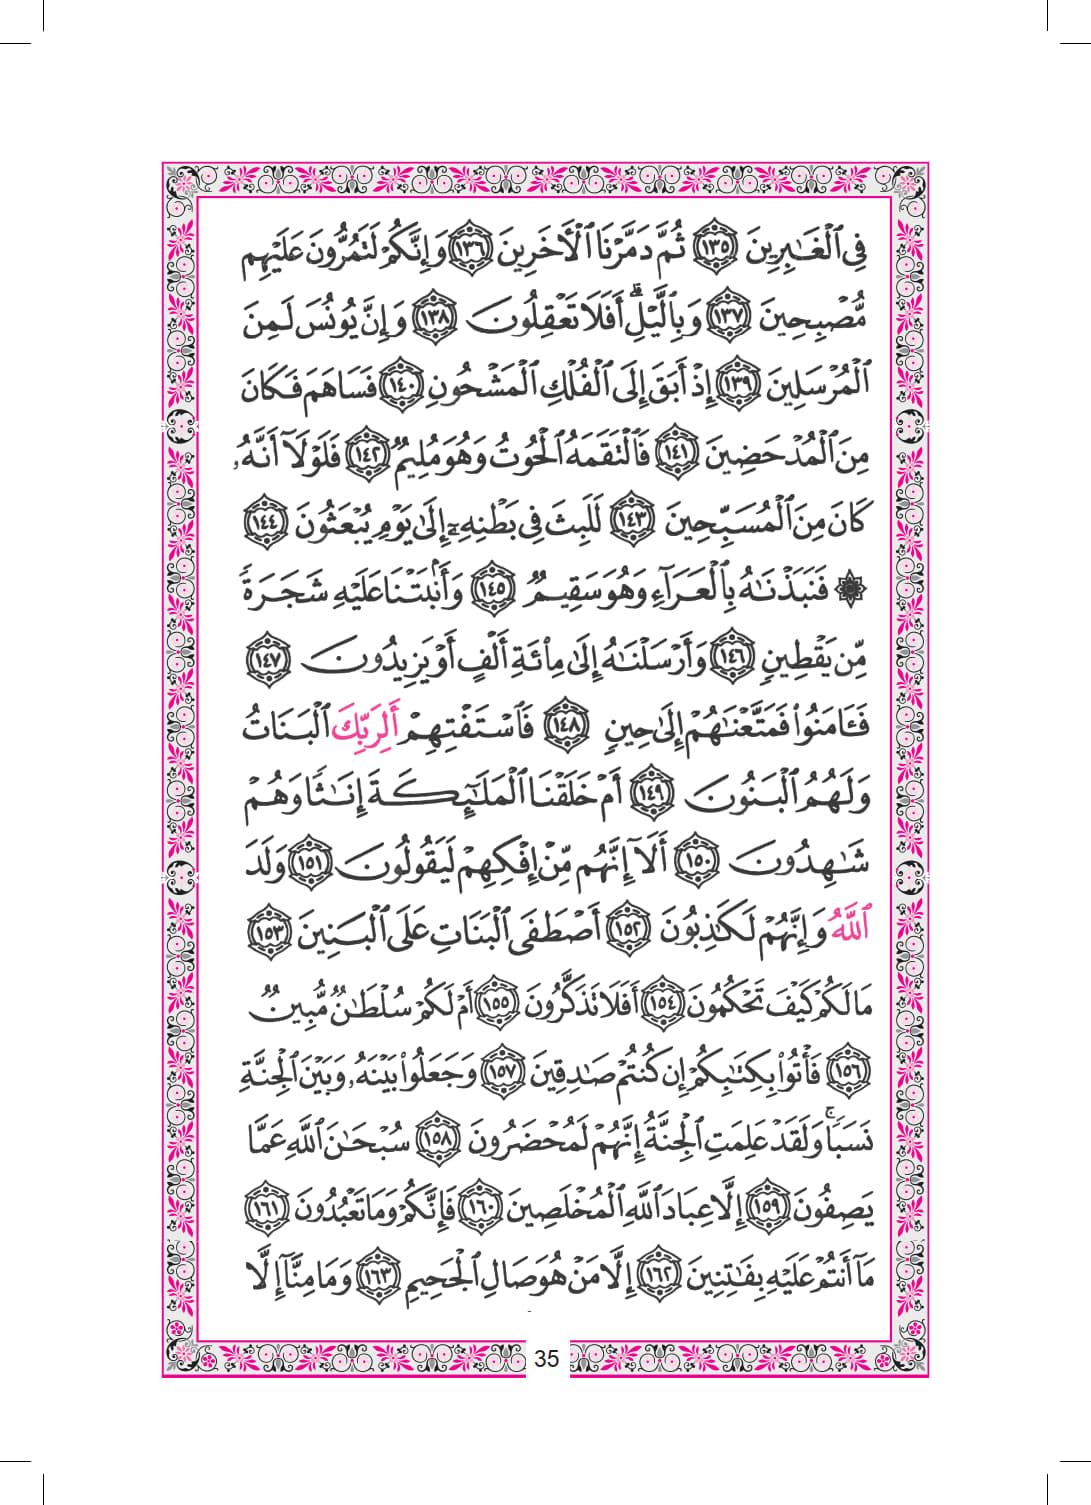 فِي ٱلْغَـٰبِرِينَ ١٣٥ ثُمَّ دَمَّرْنَا ٱلْـَٔاخَرِينَ ١٣٦ وَإِنَّكُمْ لَتَمُرُّونَ عَلَيْهِم
مُّصْبِحِينَ ١٣٧ وَبِٱلَّيْلِ ۗ أَفَلَا تَعْقِلُونَ ١٣٨ وَإِنَّ يُونُسَ لَمِنَ
ٱلْمُرْسَلِينَ ١٣٩ إِذْ أَبَقَ إِلَى ٱلْفُلْكِ ٱلْمَشْحُونِ ١٤٠ فَسَاهَمَ فَكَانَ
مِنَ ٱلْمُدْحَضِينَ ١٤١ فَٱلْتَقَمَهُ ٱلْحُوتُ وَهُوَ مُلِيمٌ ١٤٢ فَلَوْلَآ أَنَّهُۥ
كَانَ مِنَ ٱلْمُسَبِّحِينَ ١٤٣ لَلَبِثَ فِي بَطْنِهِۦٓ إِلَىٰ يَوْمِ يُبْعَثُونَ ١٤٤
۞ فَنَبَذْنَـٰهُ بِٱلْعَرَآءِ وَهُوَ سَقِيمٌ ١٤٥ وَأَنۢبَتْنَا عَلَيْهِ شَجَرَةً
مِّن يَقْطِينٍ ١٤٦ وَأَرْسَلْنَـٰهُ إِلَىٰ مِا۟ئَةِ أَلْفٍ أَوْ يَزِيدُونَ ١٤٧
فَـَٔامَنُوا۟ فَمَتَّعْنَـٰهُمْ إِلَىٰ حِينٍ ١٤٨ فَٱسْتَفْتِهِمْ أَلِرَبِّكَ ٱلْبَنَاتُ
وَلَهُمُ ٱلْبَنُونَ ١٤٩ أَمْ خَلَقْنَا ٱلْمَلَـٰٓئِكَةَ إِنَـٰثًا وَهُمْ
شَـٰهِدُونَ ١٥٠ أَلَآ إِنَّهُم مِّنْ إِفْكِهِمْ لَيَقُولُونَ ١٥١ وَلَدَ
ٱللَّهُ وَإِنَّهُمْ لَكَـٰذِبُونَ ١٥٢ أَصْطَفَى ٱلْبَنَاتِ عَلَى ٱلْبَنِينَ ١٥٣
مَا لَكُمْ كَيْفَ تَحْكُمُونَ ١٥٤ أَفَلَا تَذَكَّرُونَ ١٥٥ أَمْ لَكُمْ سُلْطَـٰنٌ مُّبِينٌ
١٥٦ فَأْتُوا۟ بِكِتَـٰبِكُمْ إِن كُنتُمْ صَـٰدِقِينَ ١٥٧ وَجَعَلُوا۟ بَيْنَهُۥ وَبَيْنَ ٱلْجِنَّةِ
نَسَبًا ۚ وَلَقَدْ عَلِمَتِ ٱلْجِنَّةُ إِنَّهُمْ لَمُحْضَرُونَ ١٥٨ سُبْحَـٰنَ ٱللَّهِ عَمَّا
يَصِفُونَ ١٥٩ إِلَّا عِبَادَ ٱللَّهِ ٱلْمُخْلَصِينَ ١٦٠ فَإِنَّكُمْ وَمَا تَعْبُدُونَ ١٦١
مَآ أَنتُمْ عَلَيْهِ بِفَـٰتِنِينَ ١٦٢ إِلَّا مَنْ هُوَ صَالِ ٱلْجَحِيمِ ١٦٣ وَمَا مِنَّآ إِلَّا
35